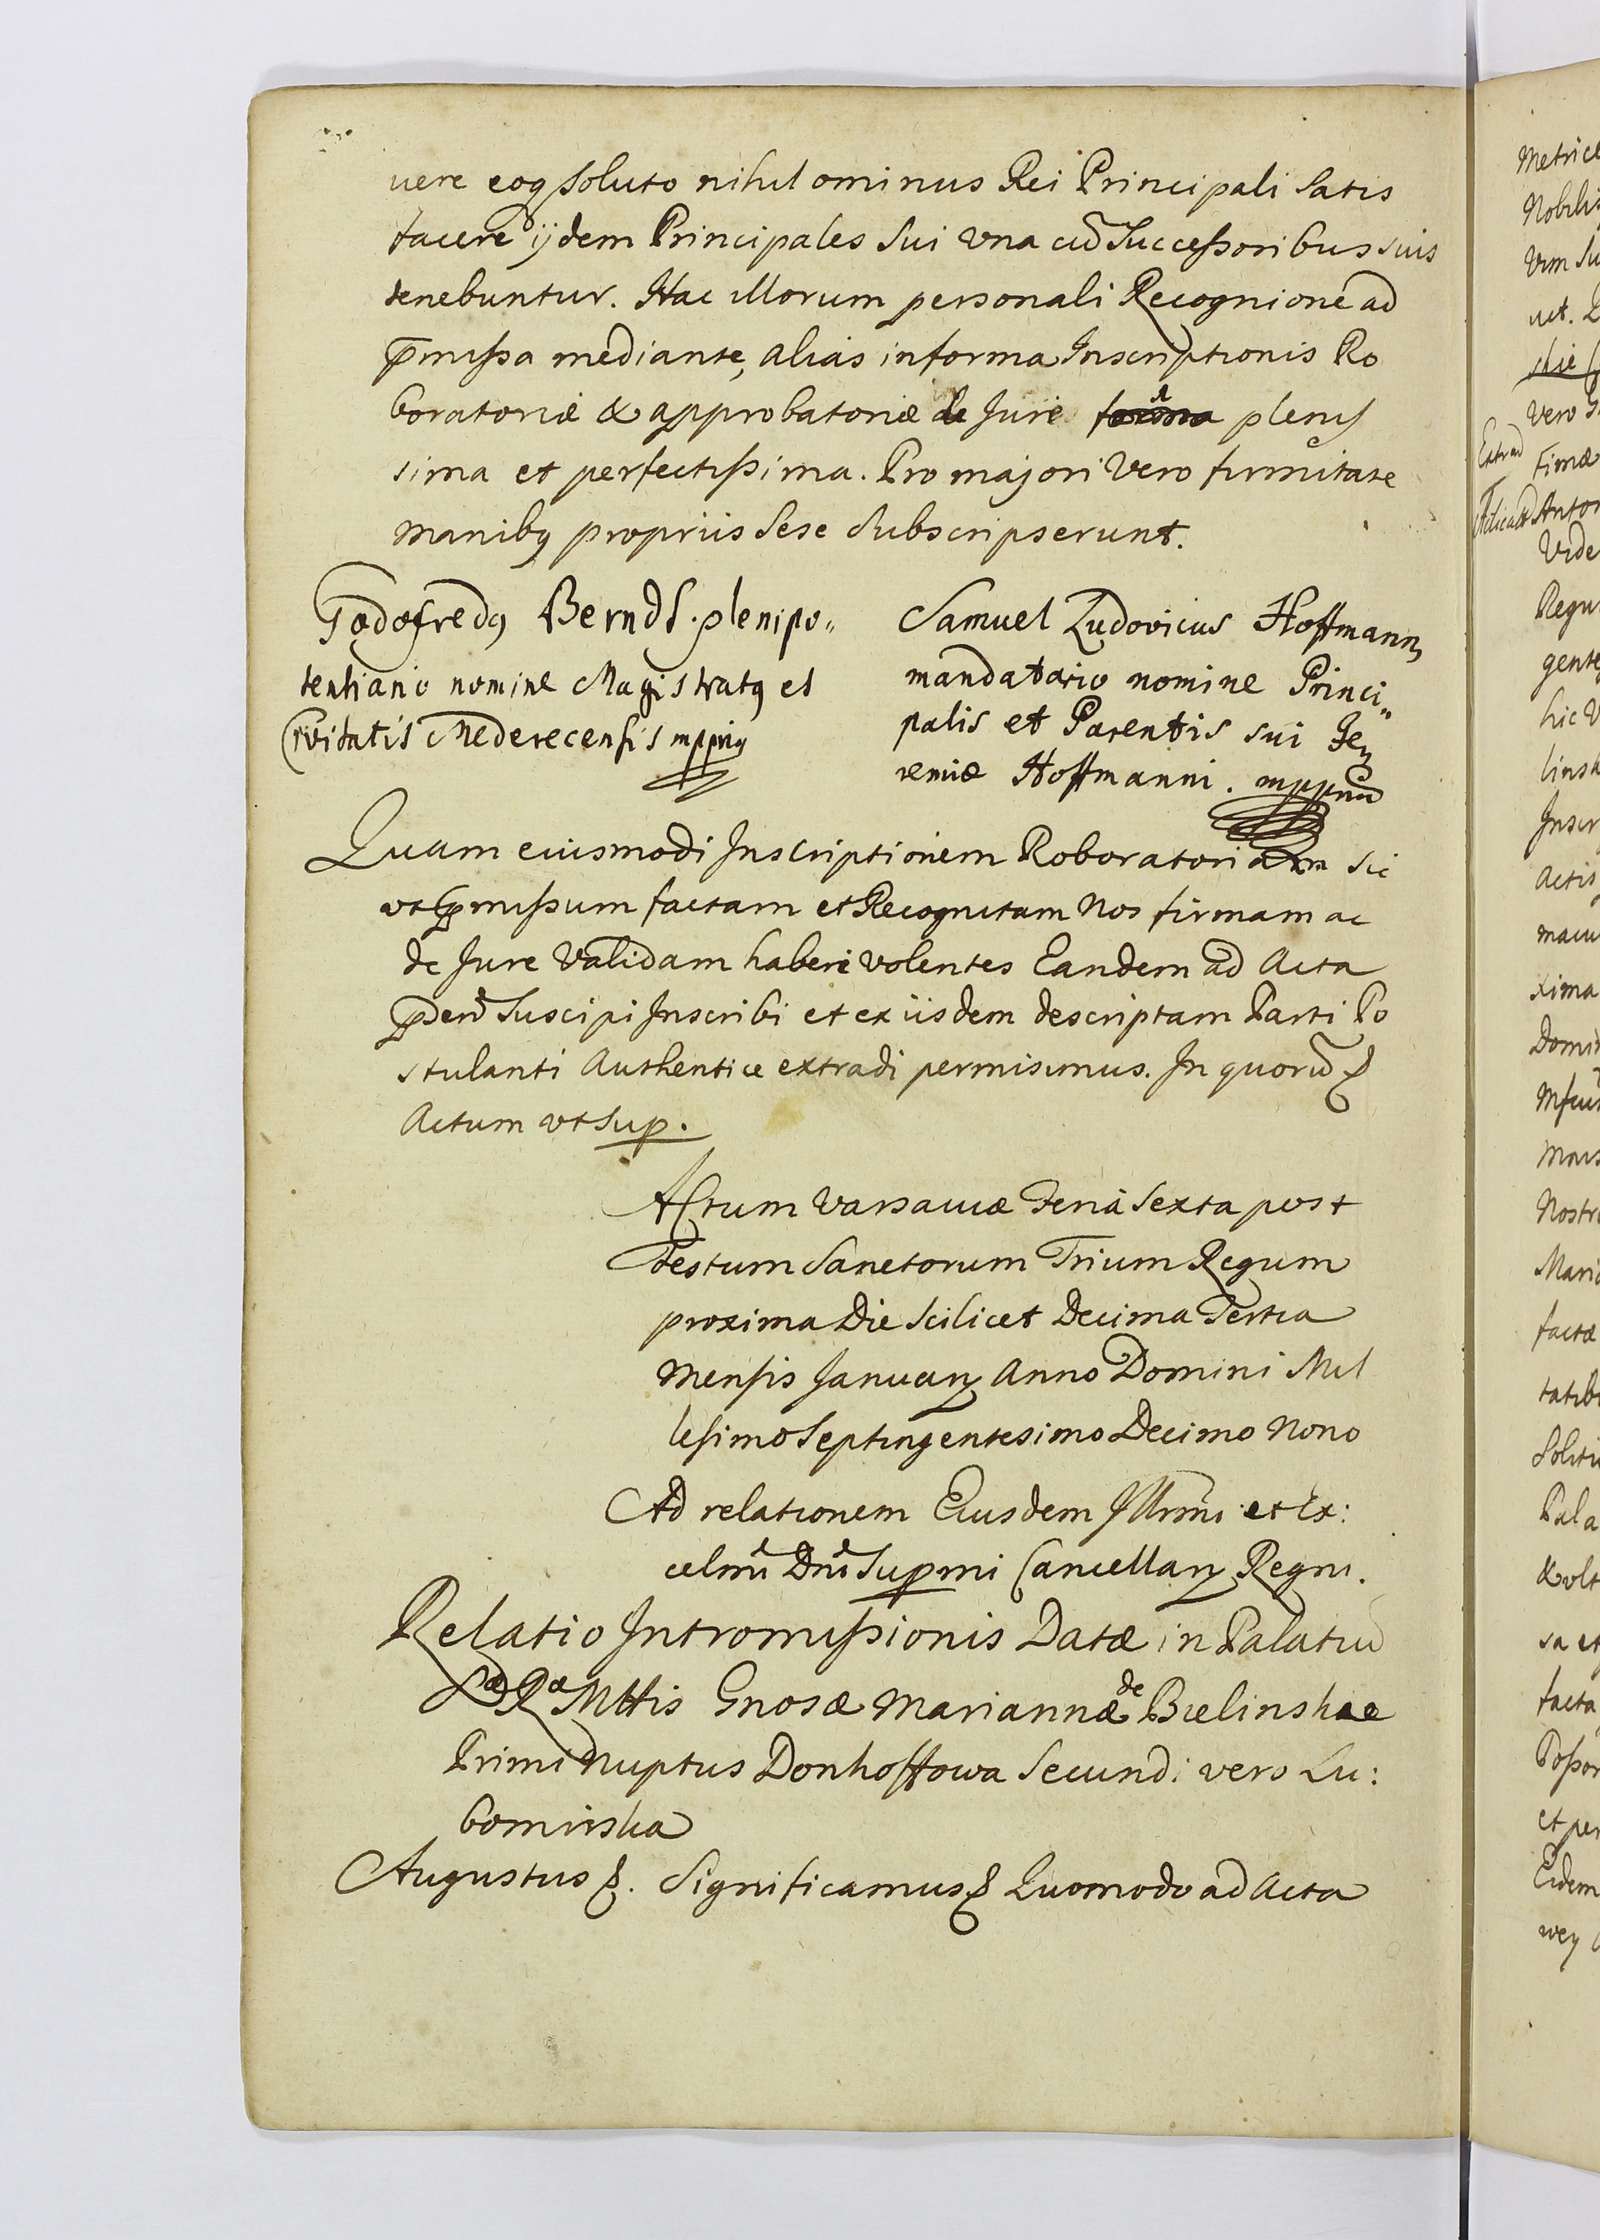 uere eoq soluto nihilominus Rei Principali Satis
facere ijdem Principales Sui vna cū Successoribus suis
tenebuntur. Hac illorum personali Recognione ad
p̄missa mediante, alias in forma Inscriptionis Ro
boratoriæ & approbatoriæ de Jure plenis
sima et perfectissima. Pro majori Vero firmitate
manibq proprijs Sese Subscripserunt.
Godofredq Berndt. plenipo„
tentiario nomine Magistratq et
Civitatis Mederecensis mppriq
Samuel Ludovicus Hoffmann
mandatario nomine Princi„
palis et Parentis sui Je„
remiæ Hoffmanni. mppria
Quam eiusmodi Inscriptionem Roboratoriam sic
vt p̄missum factam et Recognitam Nos firmam ac
de Jure Validam haberi volentes Eandem ad Acta
p̄dend Suscipi Inscribi et ex iisdem descriptam Parti Po
stulanti Authentice extradi permisimus. In quorū &
Actum vt sup.
Actum Varsaviæ Feria Sexta post
Festum Sanctorum Trium Regum
proxima Die Scilicet Decima Tertia
Mensis Januarij Anno Domini Mil
lesimo Septingentesimo Decimo Nono
Ad relationem Eiusdem Illrmi et Ex:
celmi Dni Supmi Cancellarij Regni.
Relatio Intromissionis Datæ in Palatiū
Sæ Ræ Mttis Gnosæ Mariannæ de Bielinskae
Primi Nuptus Donhoffowa Secundi vero Lu:
bomirska
Augustus &. Significamus & Quomodo ad Acta
Metrice
Nobilis
Vero
Antor
Vide
Regu
gente
hic V
linsk
Inscr
Actis
xima
Domin
Nostr
Maria
factæ
tatib
Solit
Pala
& vlt
sa et
facta
Possor
et per
Eidem